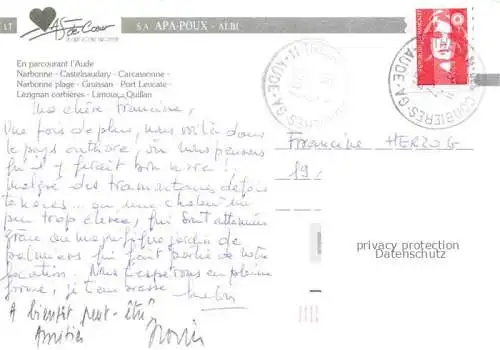 LT
AS de Cœur
S.A. APA-POUX - ALBI
En parcourant l'Aude
Narbonne - Castelnaudary - Carcassonne -
Narbonne plage - Gruissan - Port Leucate -
Lézignan corbières - Limoux - Quillan
Ma chère Francine,
Une fois de plus, nous voilà dans
le pays cathare, où nous pensons
qu'il y ferait bon vivre !
malgré des tramontanes
tenaces ou une chaleur un
peu trop élevée, qui sont atténuées
grâce au magnifique jardin de
palmiers qui fait partie de notre
location. Nous t'espérons en pleine
forme, je t'embrasse
A bientôt peut-être
Amitiés
Francine HERZOG
privacy protection
Datenschutz